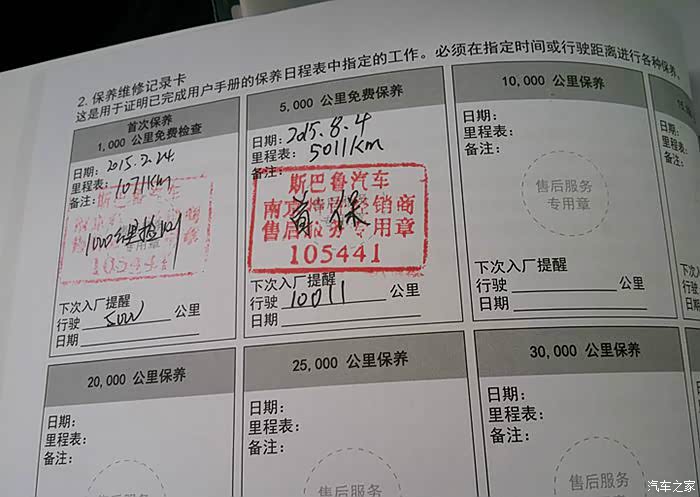 2. 保养维修记录卡
这是用于证明已完成用户手册的保养日程表中指定的工作。必须在指定时间或行驶距离进行各种保养。
首次保养
1,000 公里免费检查
日期: 2015.7.24.
里程表: 1071km
备注:
1000公里
下次入厂提醒
行驶 5000 公里
日期
5,000 公里免费保养
日期: 2015.8.4
里程表: 5011km
备注:
斯巴鲁汽车
南京 经销商
售后服务专用章
105441
首保
下次入厂提醒
行驶 10011 公里
日期
10,000 公里保养
日期:
里程表:
备注:
售后服务
专用章
下次入厂提醒
行驶 公里
日期
20,000 公里保养
日期:
里程表:
备注:
售后服务
25,000 公里保养
日期:
里程表:
备注:
售后服务
30,000 公里保养
日期:
里程表:
备注:
售后服务
汽车之家